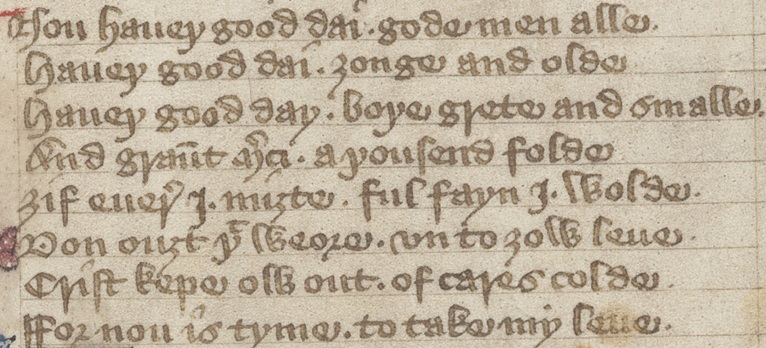 Nou haueþ good dai · gode men alle ·
Haueþ good dai · ȝonge and olde
Haueþ good day · boþe grete and smalle ·
And graūt m̉ci · a þousend folde
Ȝif euer̉ I · miȝte · ful fayn I · wolde ·
Don ouȝt þͭ weore · vn to ȝow leue ·
Crist kepe ow out · of cares colde ·
ffor nou is tyme · to take my leue ·